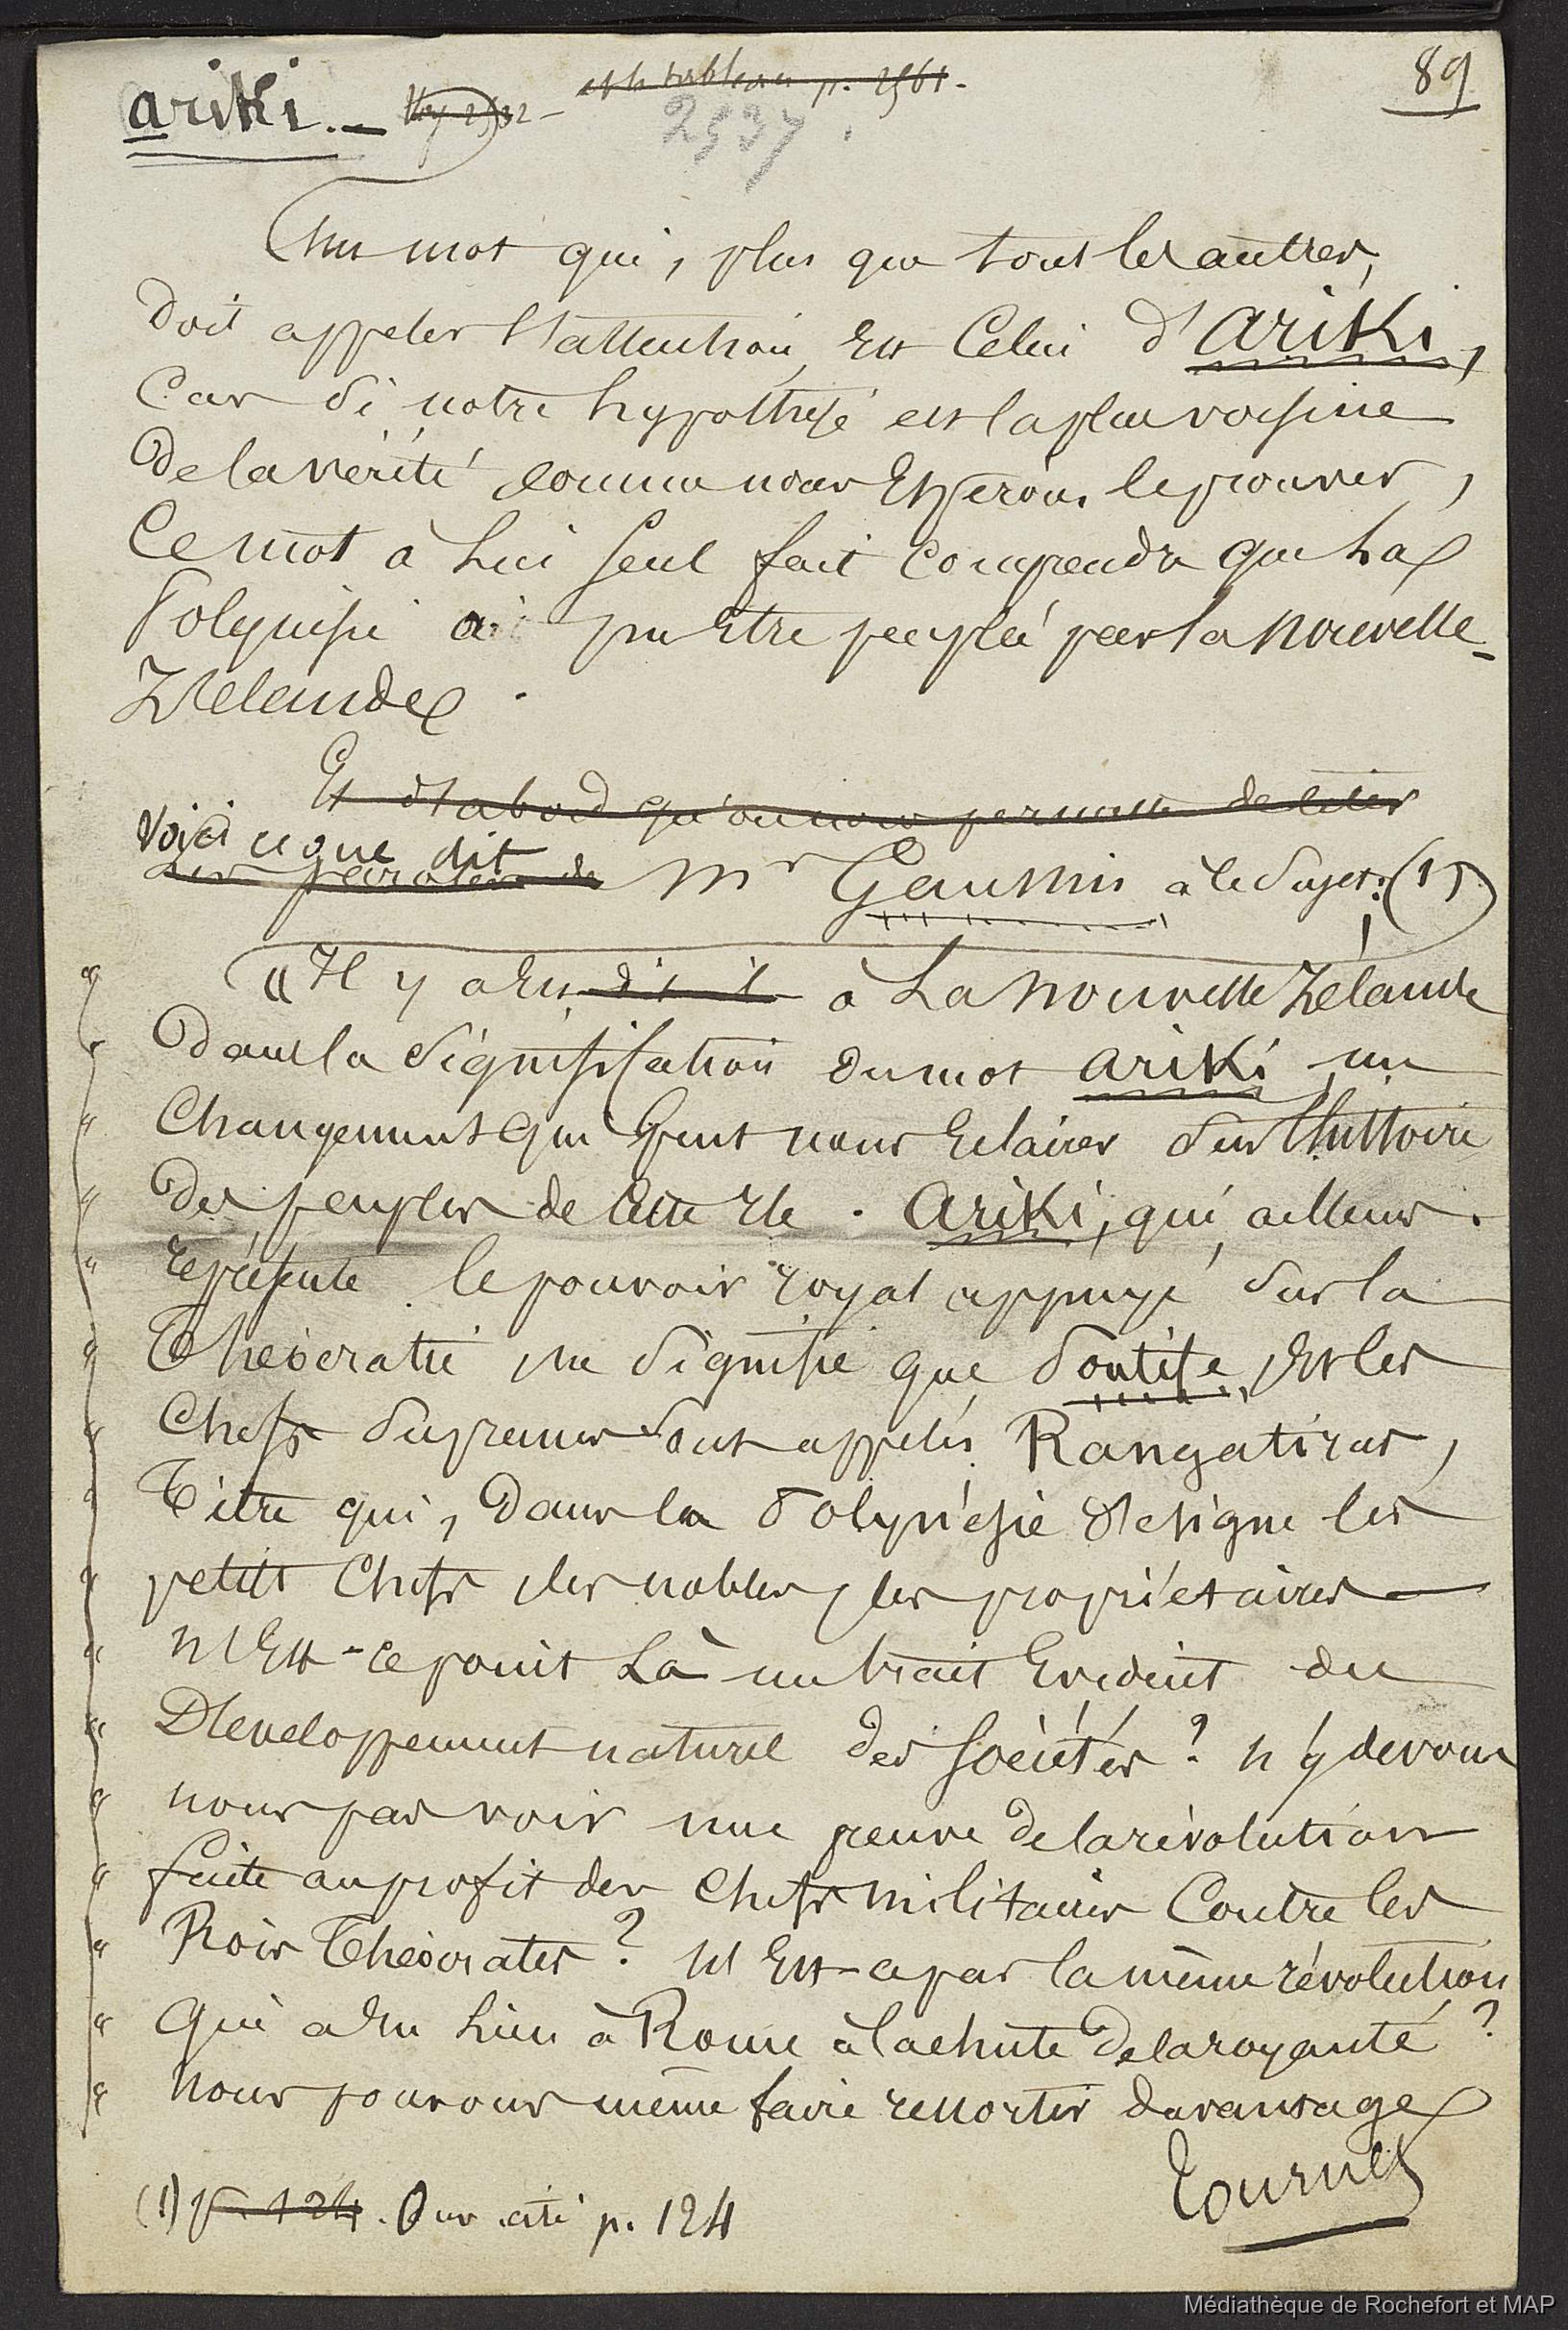 89
ariki. _ Voy 2532 _ et le tableau p. 2561 -
2537.
Un mot qui, plus que tous les autres,
doit appeler l'attention, est celui d'ariki,
car si notre hypothèse est la plus voisine
de la vérité comme nous espérons le prouver,
ce mot à lui seul fait comprendre que la
Polynésie ai pu être peuplée par la Nouvelle-
Zélande.
Et d'abord qu'on nous permette de citer
Voici ce que dit
les paroles de Mr Gaussin à ce sujet: (1)
"Il y a eu, dit-il à la Nouvelle Zélande
" dans la signification du mot ariki, un
" changement qui peut nous éclairer sur l'histoire
" des peuples de cette île. Ariki, qui, ailleurs.
" représente le pouvoir royal appuyé sur la
" théocratie ne signifie que Pontife, et les
" chefs suprêmes sont appelés Rangatiras,
" titre qui, dans la Polynésie désigne les
" petits chefs, les nobles, les propriétaires _
" n'est-ce point là un trait évident du
" développement naturel des sociétés? n'y devons
" nous pas voir une preuve de la révolution
" faite au profit des chefs militaires contre les
" Rois théocrates? N'est-ce pas la même révolution
" qui a eu lieu à Rome à la chute de la royauté?
" nous pouvons même faire ressortir davantage
Tournez
(1) p. 124. Ouv. cité p. 124
Médiathèque de Rochefort et MAP